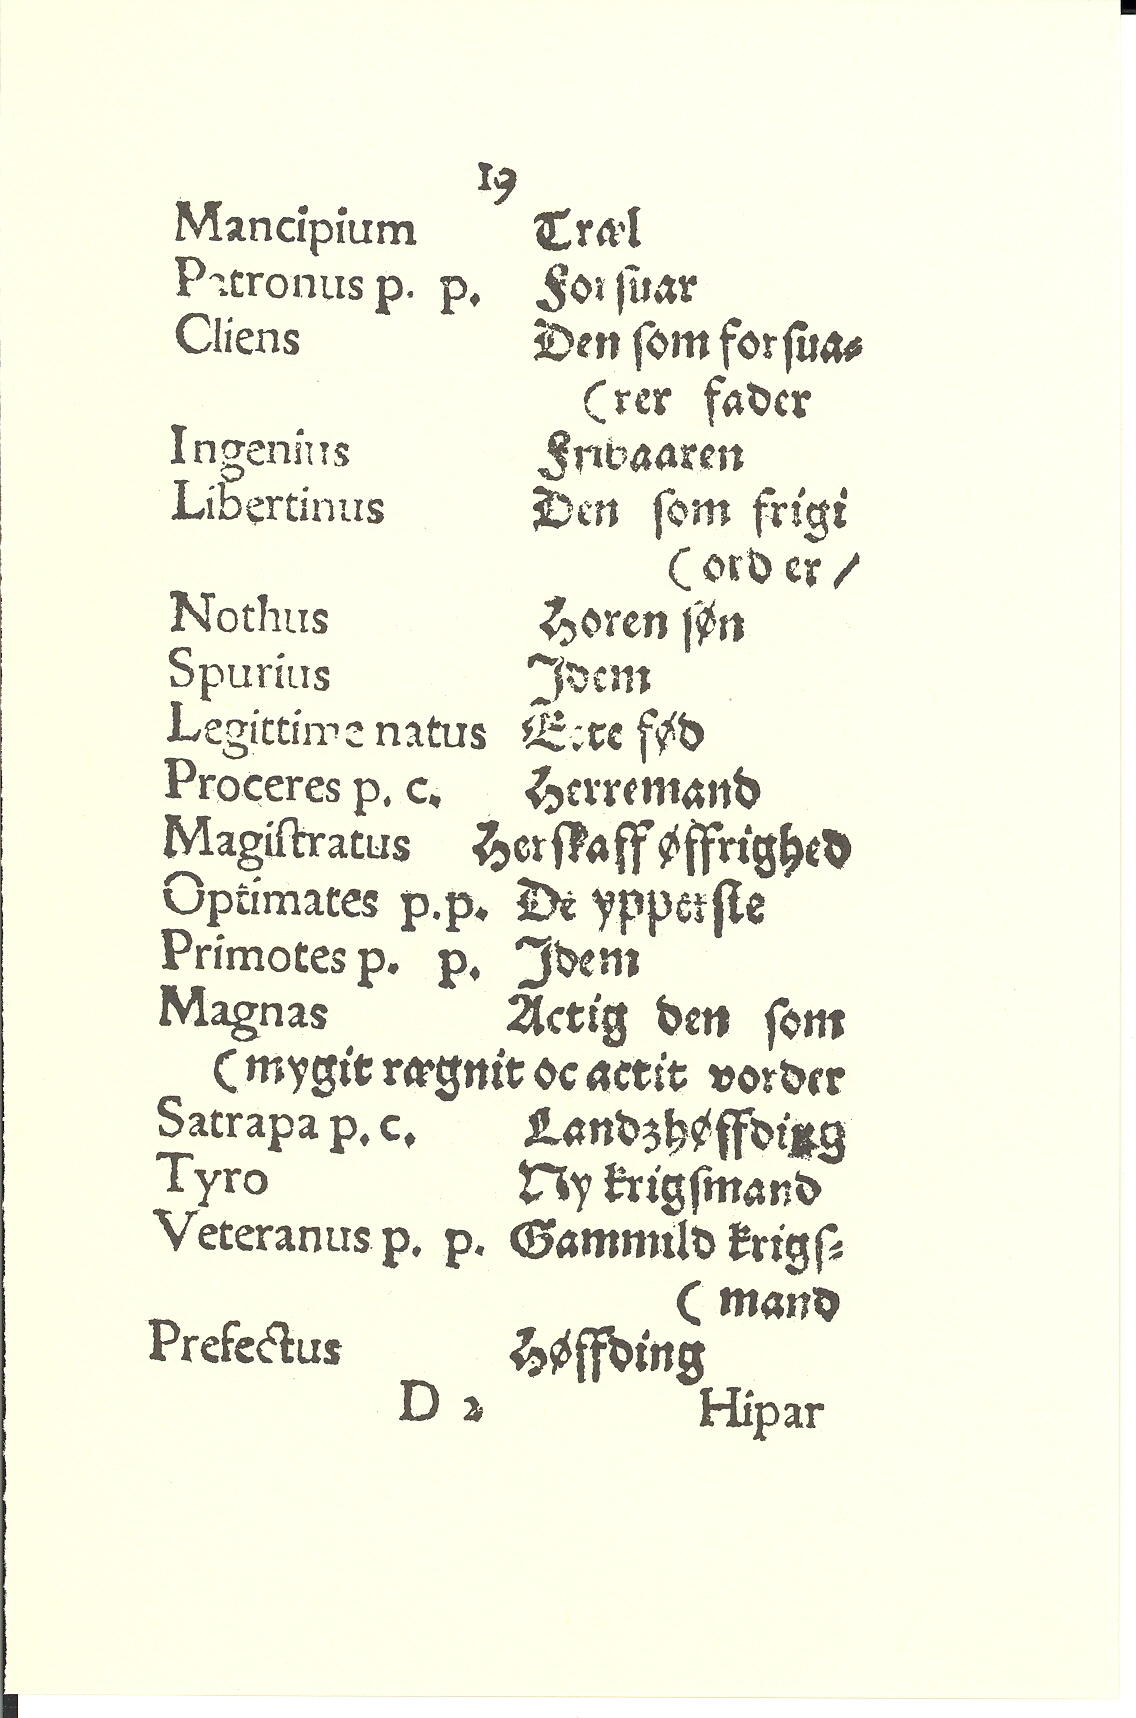 19
Mancipium Træl
Patronus p. p. Forſuar
Cliens Den ſom forſua⸗
(rer fader
Ingenius Fribaaren
Libertinus Den ſom frigi
(ord er /
Nothus Horen ſøn
Spurius Idem
Legittime natus Ecte fød
Proceres p. c. Herremand
Magiſtratus Herſkaff øffrighed
Optimates p.p. De ypperſte
Primotes p. p. Idem
Magnas Actig den ſom
(mygit rægnit oc actit vorder
Satrapa p. c. Landzhøffding
Tyro Ny krigſmand
Veteranus p. p. Gammild krigſ⸗
(mand
Prefectus Høffding
D 2 Hipar